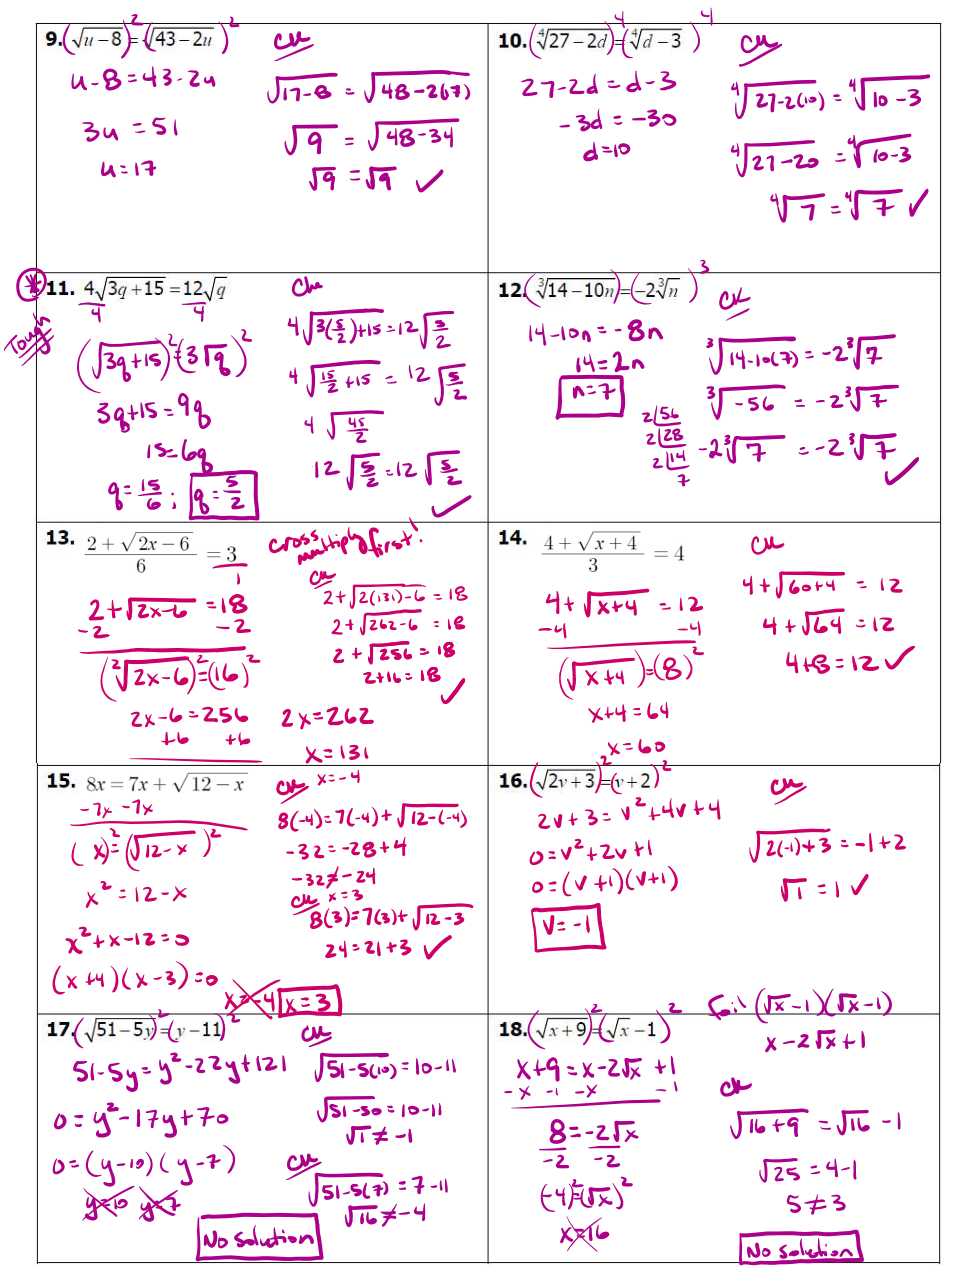 9. (√(u−8))² = (√(43−2u))²
u-8=43-2u
3u = 51
u=17
CK
√(17-8) = √(48-2(17))
√9 = √(48-34)
√9 = √9 ✓
10. (⁴√(27−2d))⁴ = (⁴√(d−3))⁴
27-2d = d-3
-3d = -30
d=10
CK
⁴√(27-2(10)) = ⁴√(10-3)
⁴√(27-20) = ⁴√(10-3)
⁴√7 = ⁴√7 ✓
* Tough
11. 4√(3q+15) = 12√q
4 4
(√(3q+15))² = (3√q)²
3q+15=9q
15=6q
q=15/6; q=5/2
CK
4√(3(5/2)+15) = 12√(5/2)
4√(15/2+15) = 12√(5/2)
4√(45/2)
12√(5/2) = 12√(5/2)
✓
12. (³√(14−10n)) = (−2³√n)³
14-10n = -8n
14=2n
n=7
CK
³√(14-10(7)) = -2³√7
³√-56 = -2³√7
2 56
2 28
2 14
7
-2³√7 = -2³√7
✓
13. (2+√(2x−6))/6 = 3
1
cross multiply first!
2+√(2x-6) = 18
-2 -2
(²√(2x-6))² = (16)²
2x-6=256
+6 +6
2x=262
x=131
CK
2+√(2(131)-6) = 18
2+√(262-6) = 18
2+√256 = 18
2+16=18
✓
14. (4+√(x+4))/3 = 4
4+√(x+4) = 12
-4 -4
(√(x+4))=(8)²
x+4=64
x=60
CK
4+√(60+4) = 12
4+√64 = 12
4+8=12 ✓
15. 8x = 7x + √(12−x)
-7x -7x
(x)² = (√(12-x))²
x² = 12-x
x²+x-12=0
(x+4)(x-3)=0
x=-4 x=3
CK x=-4
8(-4)=7(-4)+√(12-(-4))
-32=-28+4
-32≠-24
CK x=3
8(3)=7(3)+√(12-3)
24=21+3 ✓
16. (√(2v+3))² = (v+2)²
2v+3=v²+4v+4
0=v²+2v+1
0=(v+1)(v+1)
v=-1
CK
√(2(-1)+3) = -1+2
√1 = 1 ✓
17. (√(51−5y))² = (y−11)²
51-5y=y²-22y+121
0=y²-17y+70
0=(y-10)(y-7)
y=10 y=7
CK
√(51-5(10)) = 10-11
√(51-50) = 10-11
√1 ≠ -1
CK
√(51-5(7)) = 7-11
√16 ≠ -4
No solution
18. (√(x+9))² = (√x−1)²
Foil (√x-1)(√x-1)
x-2√x+1
x+9=x-2√x+1
-x -1 -x -1
8=-2√x
-2 -2
(-4)²=(√x)²
x=16
CK
√(16+9) = √16 -1
√25 = 4-1
5≠3
No solution